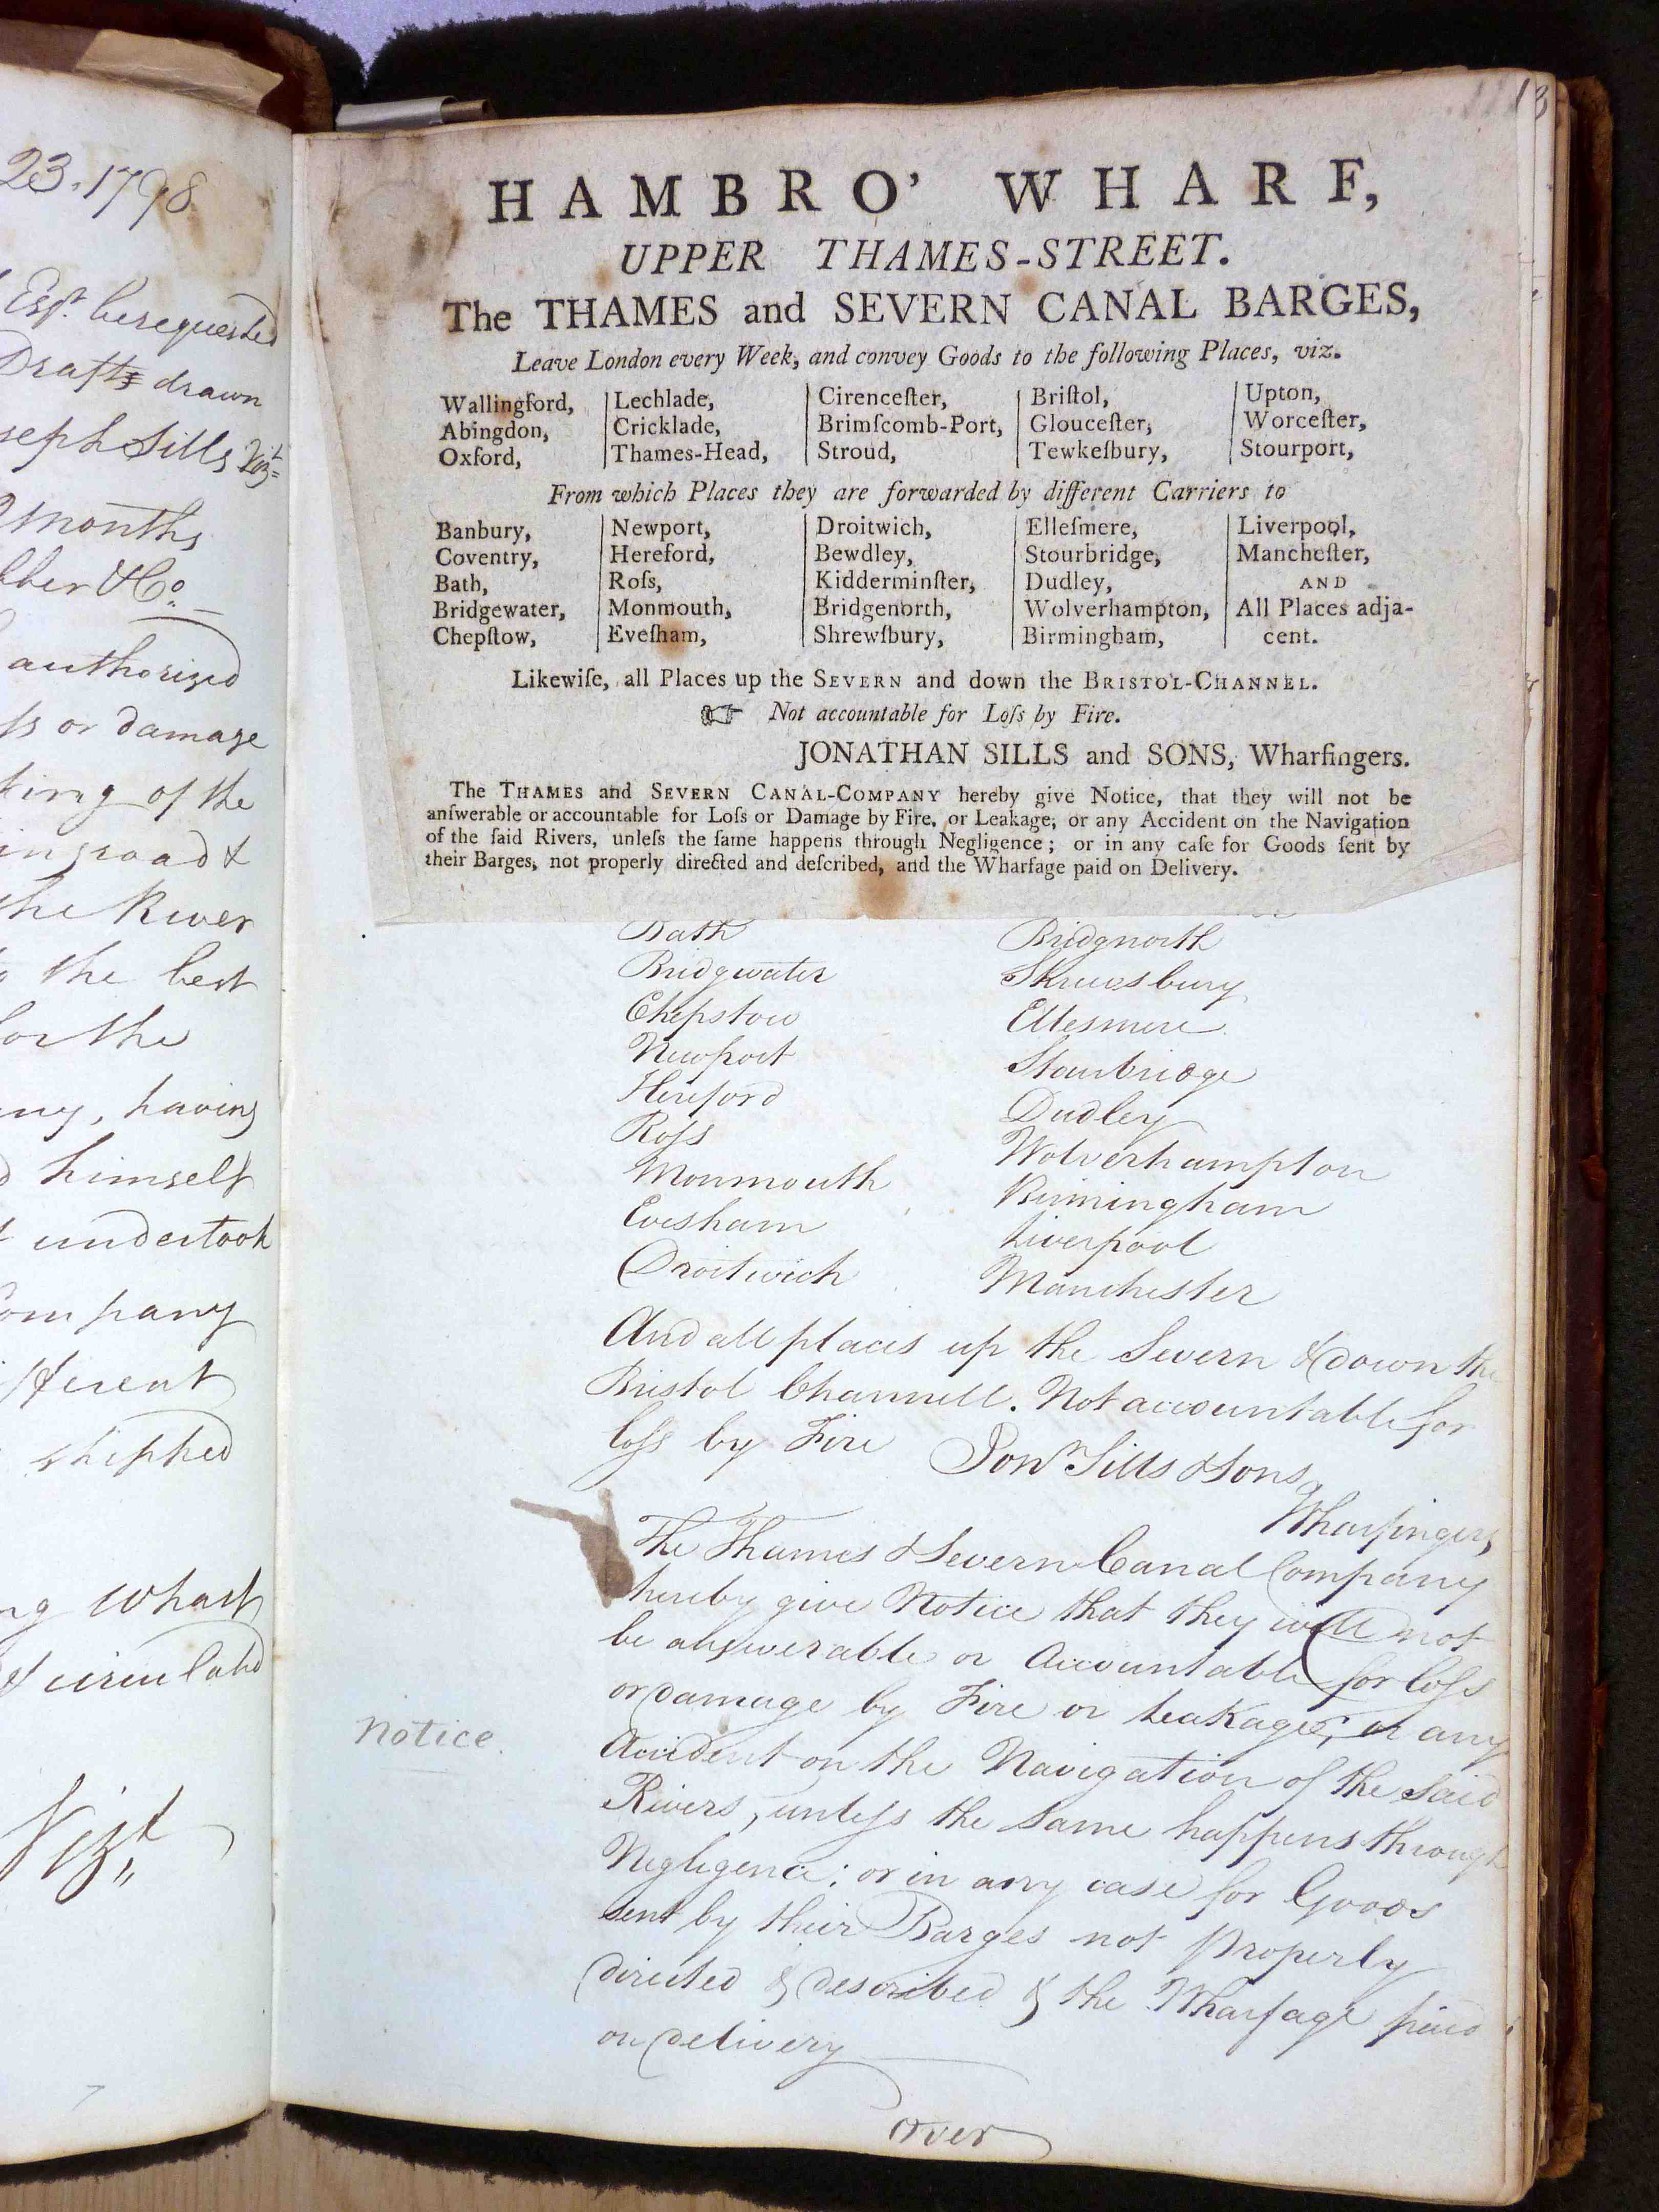 23. 1798
Esqr. be requested
Drafts drawn
seph Sills Vizt
2 months
& Co.
authorized
ss or damage
king of the
road &
the River
to the best
for the
ny, having
d himself
undertook
ompany
fferent
shipped
ng Wharf
circulated
Vizt
13
HAMBRO' WHARF,
UPPER THAMES-STREET.
The THAMES and SEVERN CANAL BARGES,
Leave London every Week, and convey Goods to the following Places, viz.
Wallingford, Lechlade, Cirenceſter, Briſtol, Upton,
Abingdon, Cricklade, Brimſcomb-Port, Glouceſter, Worceſter,
Oxford, Thames-Head, Stroud, Tewkeſbury, Stourport,
From which Places they are forwarded by different Carriers to
Banbury, Newport, Droitwich, Elleſmere, Liverpool,
Coventry, Hereford, Bewdley, Stourbridge, Mancheſter,
Bath, Roſs, Kidderminſter, Dudley, AND
Bridgewater, Monmouth, Bridgenorth, Wolverhampton, All Places adja-
Chepſtow, Eveſham, Shrewſbury, Birmingham, cent.
Likewiſe, all Places up the SEVERN and down the BRISTOL-CHANNEL.
☞ Not accountable for Loſs by Fire.
JONATHAN SILLS and SONS, Wharfingers.
The THAMES and SEVERN CANAL-COMPANY hereby give Notice, that they will not be
anſwerable or accountable for Loſs or Damage by Fire, or Leakage, or any Accident on the Navigation
of the ſaid Rivers, unleſs the ſame happens through Negligence; or in any caſe for Goods ſent by
their Barges, not properly directed and deſcribed, and the Wharfage paid on Delivery.
Bath Bridgnorth
Bridgwater Shrewsbury
Chepstow Ellesmere
Newport Stourbridge
Hereford Dudley
Roſs Wolverhampton
Monmouth Birmingham
Evesham Liverpool
Droitwich Manchester
And all places up the Severn & down the
Bristol Channell. Not accountable for
loſs by Fire Jonn Sills & Sons
Wharfingers
The Thames & Severn Canal Company
hereby give Notice that they will not
be answerable or Accountable for loſs
or damage by Fire or Leakage; or any
Notice
Accident on the Navigation of the said
Rivers, unleſs the same happens through
Negligence; or in any case for Goods
sent by their Barges not properly
directed & described & the Wharfage paid
on delivery
Over